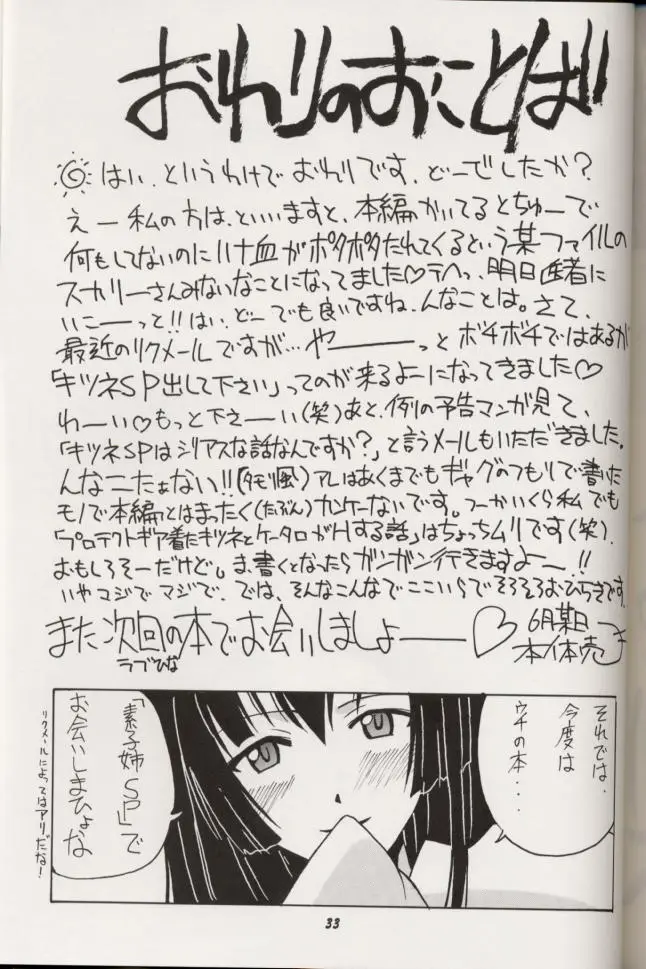 おわりのおことば
はい、というわけでおわりです。どーでしたか?
えー私の方は、といいますと、本編かいてるとちゅーで
何もしてないのにハナ血がポタポタたれてくるという某ファイルの
スカリーさんみないなことになってました♡テヘっ、明日医者に
いこーーっと!!はい、どーでも良いですね、んなことは。さて、
最近のリクメールですが…やーーーーっとボチボチではあるが
「キツネSP出して下さい」ってのが来るよーになってきました♡
わーい♡もっと下さーい(笑)あと、例の予告マンガ見て、
「キツネSPはシリアスな話なんですか?」と言うメールもいただきました。
んなこたぁない!!(タモリ風)アレはあくまでもギャグのつもりで書いた
モノで本編とはまったく(たぶん)カンケーないです。つーかいくら私でも
「プロテクトギア着たキツネとケータロがHする話」はちょっちムリです(笑)、
おもしろそーだけど。ま、書くとなったらガンガン行きますよー!!
いやマジでマジで、では、そんなこんなでここいらでそろそろおひらきです。
また次回の本でお会いしましょーーー♡
ラブひな
6月某日
本体売
それでは、
今度は
ウチの本・・・
「素子姉SP」で
お会いしまひょな
リクメールによってはアリだな!
33